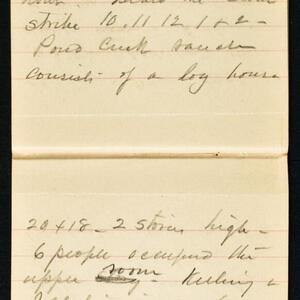 strike 10, 11 12 1 & 2 -
Pond Creek ranch
consists of a log house
20 x 18 - 2 stories high -
6 people occupied the
upper room - Keeling &